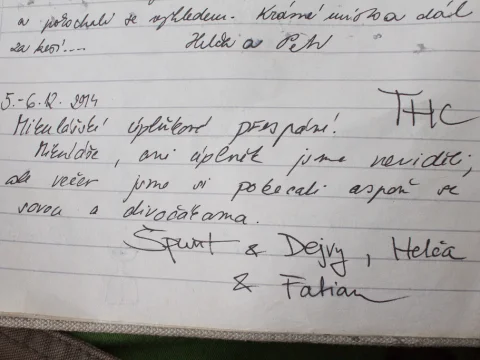 a pokochali se výhledem. Krásné místo a dál
za keší....
Helča a Petr
5.-6.12. 2014
THC
Mikulášské úplňkové přespání!
Mikuláše, ani úplněk jsme neviděli,
ale večer jsme si pokecali aspoň se
sovou a divočákama.
Špunt & Dejvy, Helča
& Fatian